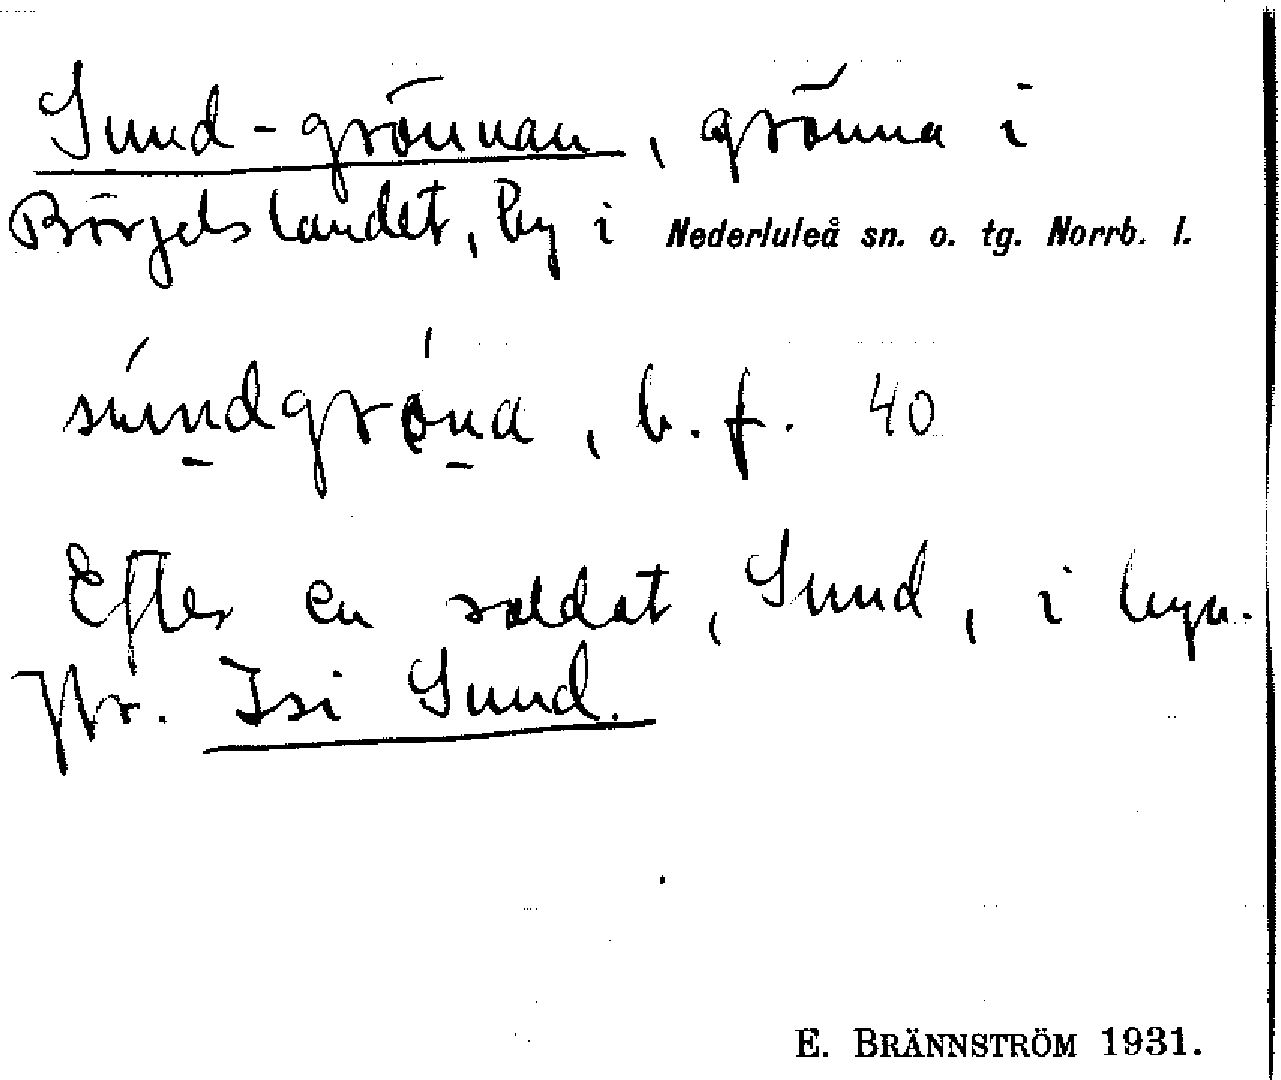 Sund-grönnan, grönna i
Börjelslandet, by i Nederluleå sn. o. tg. Norrb. l.
súndgróna, b. f. 40
Efter en soldat, Sund, i byn.
Jfr. Isi Sund.
E. BRÄNNSTRÖM 1931.